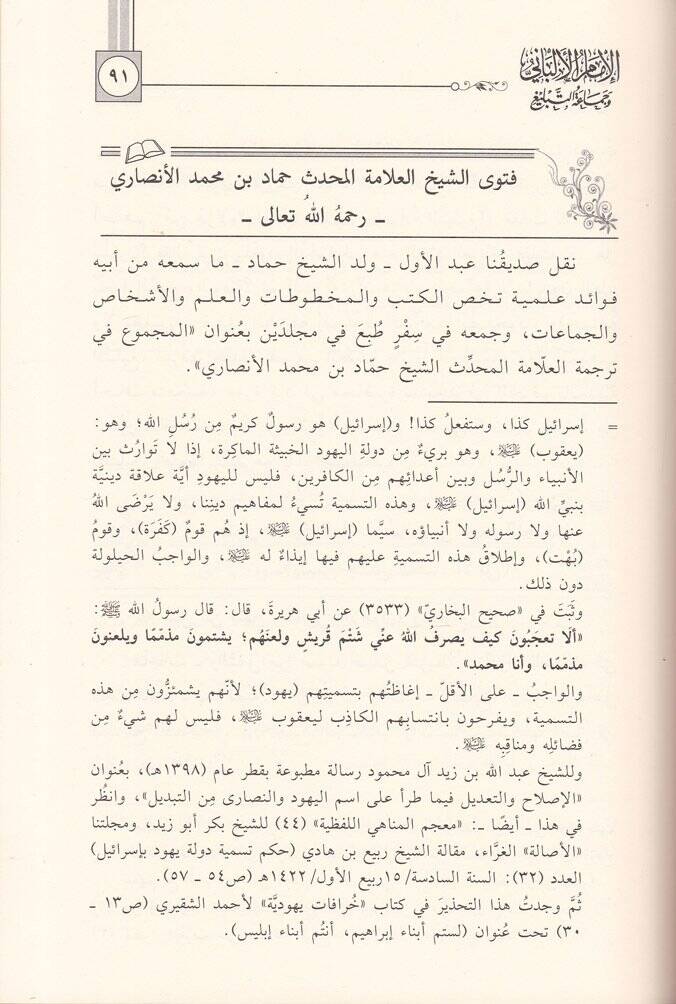 الإمام الألباني
وجماعة التبليغ
٩١
فتوى الشيخ العلامة المحدث حماد بن محمد الأنصاري
ـ رحمهُ اللهُ تعالى ـ
نقل صديقُنا عبد الأول ـ ولد الشيخ حماد ـ ما سمعه من أبيه
فوائد علمية تخص الكتب والمخطوطات والعلم والأشخاص
والجماعات، وجمعه في سِفْرٍ طُبعَ في مجلدَيْن بعُنوان «المجموع في
ترجمة العلّامة المحدِّث الشيخ حمّاد بن محمد الأنصاري».
= إسرائيل كذا، وستفعلُ كذا! و(إسرائيل) هو رسولٌ كريمٌ مِن رُسُلِ الله؛ وهو:
(يعقوب) ﷺ، وهو بريءٌ مِن دولةِ اليهود الخبيثة الماكِرة، إذا لا تَوارُث بين
الأنبياء والرُّسُل وبين أعدائِهم مِن الكافرين، فليس لليهودِ أيَّة علاقة دينيَّة
بنبيِّ الله (إسرائيل) ﷺ، وهذه التسمية تُسيءُ لمفاهيم دينِنا، ولا يَرْضَى اللهُ
عنها ولا رسوله ولا أنبياؤه، سيَّما (إسرائيل) ﷺ، إذ هُم قومٌ (كَفَرَة)، وقومُ
(بُهْت)، وإطلاقُ هذه التسميةِ عليهم فيها إيذاءٌ له ﷺ، والواجبُ الحيلولة
دون ذلك.
وثَبَتَ في «صحيح البخاريّ» (٣٥٣٣) عن أبي هريرةَ، قال: قال رسولُ الله ﷺ:
«ألَا تعجَبُونَ كيف يصرفُ اللهُ عنِّي شَتْمَ قُريشٍ ولعنَهُم؛ يشتمونَ مذمّمًا ويلعنونَ
مذمّمًا، وأنا محمد».
والواجبُ ـ على الأقلّ ـ إغاظتُهم بتسميتِهم (يهود)؛ لأنّهم يشمئزُّون مِن هذه
التسمية، ويفرحون بانتسابِهم الكاذِب ليعقوب ﷺ، فليس لهم شيءٌ مِن
فضائلِه ومناقبِه ﷺ.
وللشيخ عبد الله بن زيد آل محمود رسالة مطبوعة بقطر عام (١٣٩٨هـ)، بعُنوان
«الإصلاح والتعديل فيما طرأ على اسم اليهود والنصارى مِن التبديل»، وانظُر
في هذا ـ أيضًا ـ: «معجم المناهي اللفظية» (٤٤) للشيخ بكر أبو زيد، ومجلتنا
«الأصالة» الغرَّاء، مقالة الشيخ ربيع بن هادي (حكم تسمية دولة يهود بإسرائيل)
العدد (٣٢): السنة السادسة/ ١٥ربيع الأول/ ١٤٢٢هـ (ص٥٤ ـ ٥٧).
ثُمَّ وجدتُ هذا التحذيرَ في كتاب «خُرافات يهوديَّة» لأحمد الشقيري (ص١٣ ـ
٣٠) تحت عُنوان (لستم أبناء إبراهيم، أنتُم أبناء إبليس).